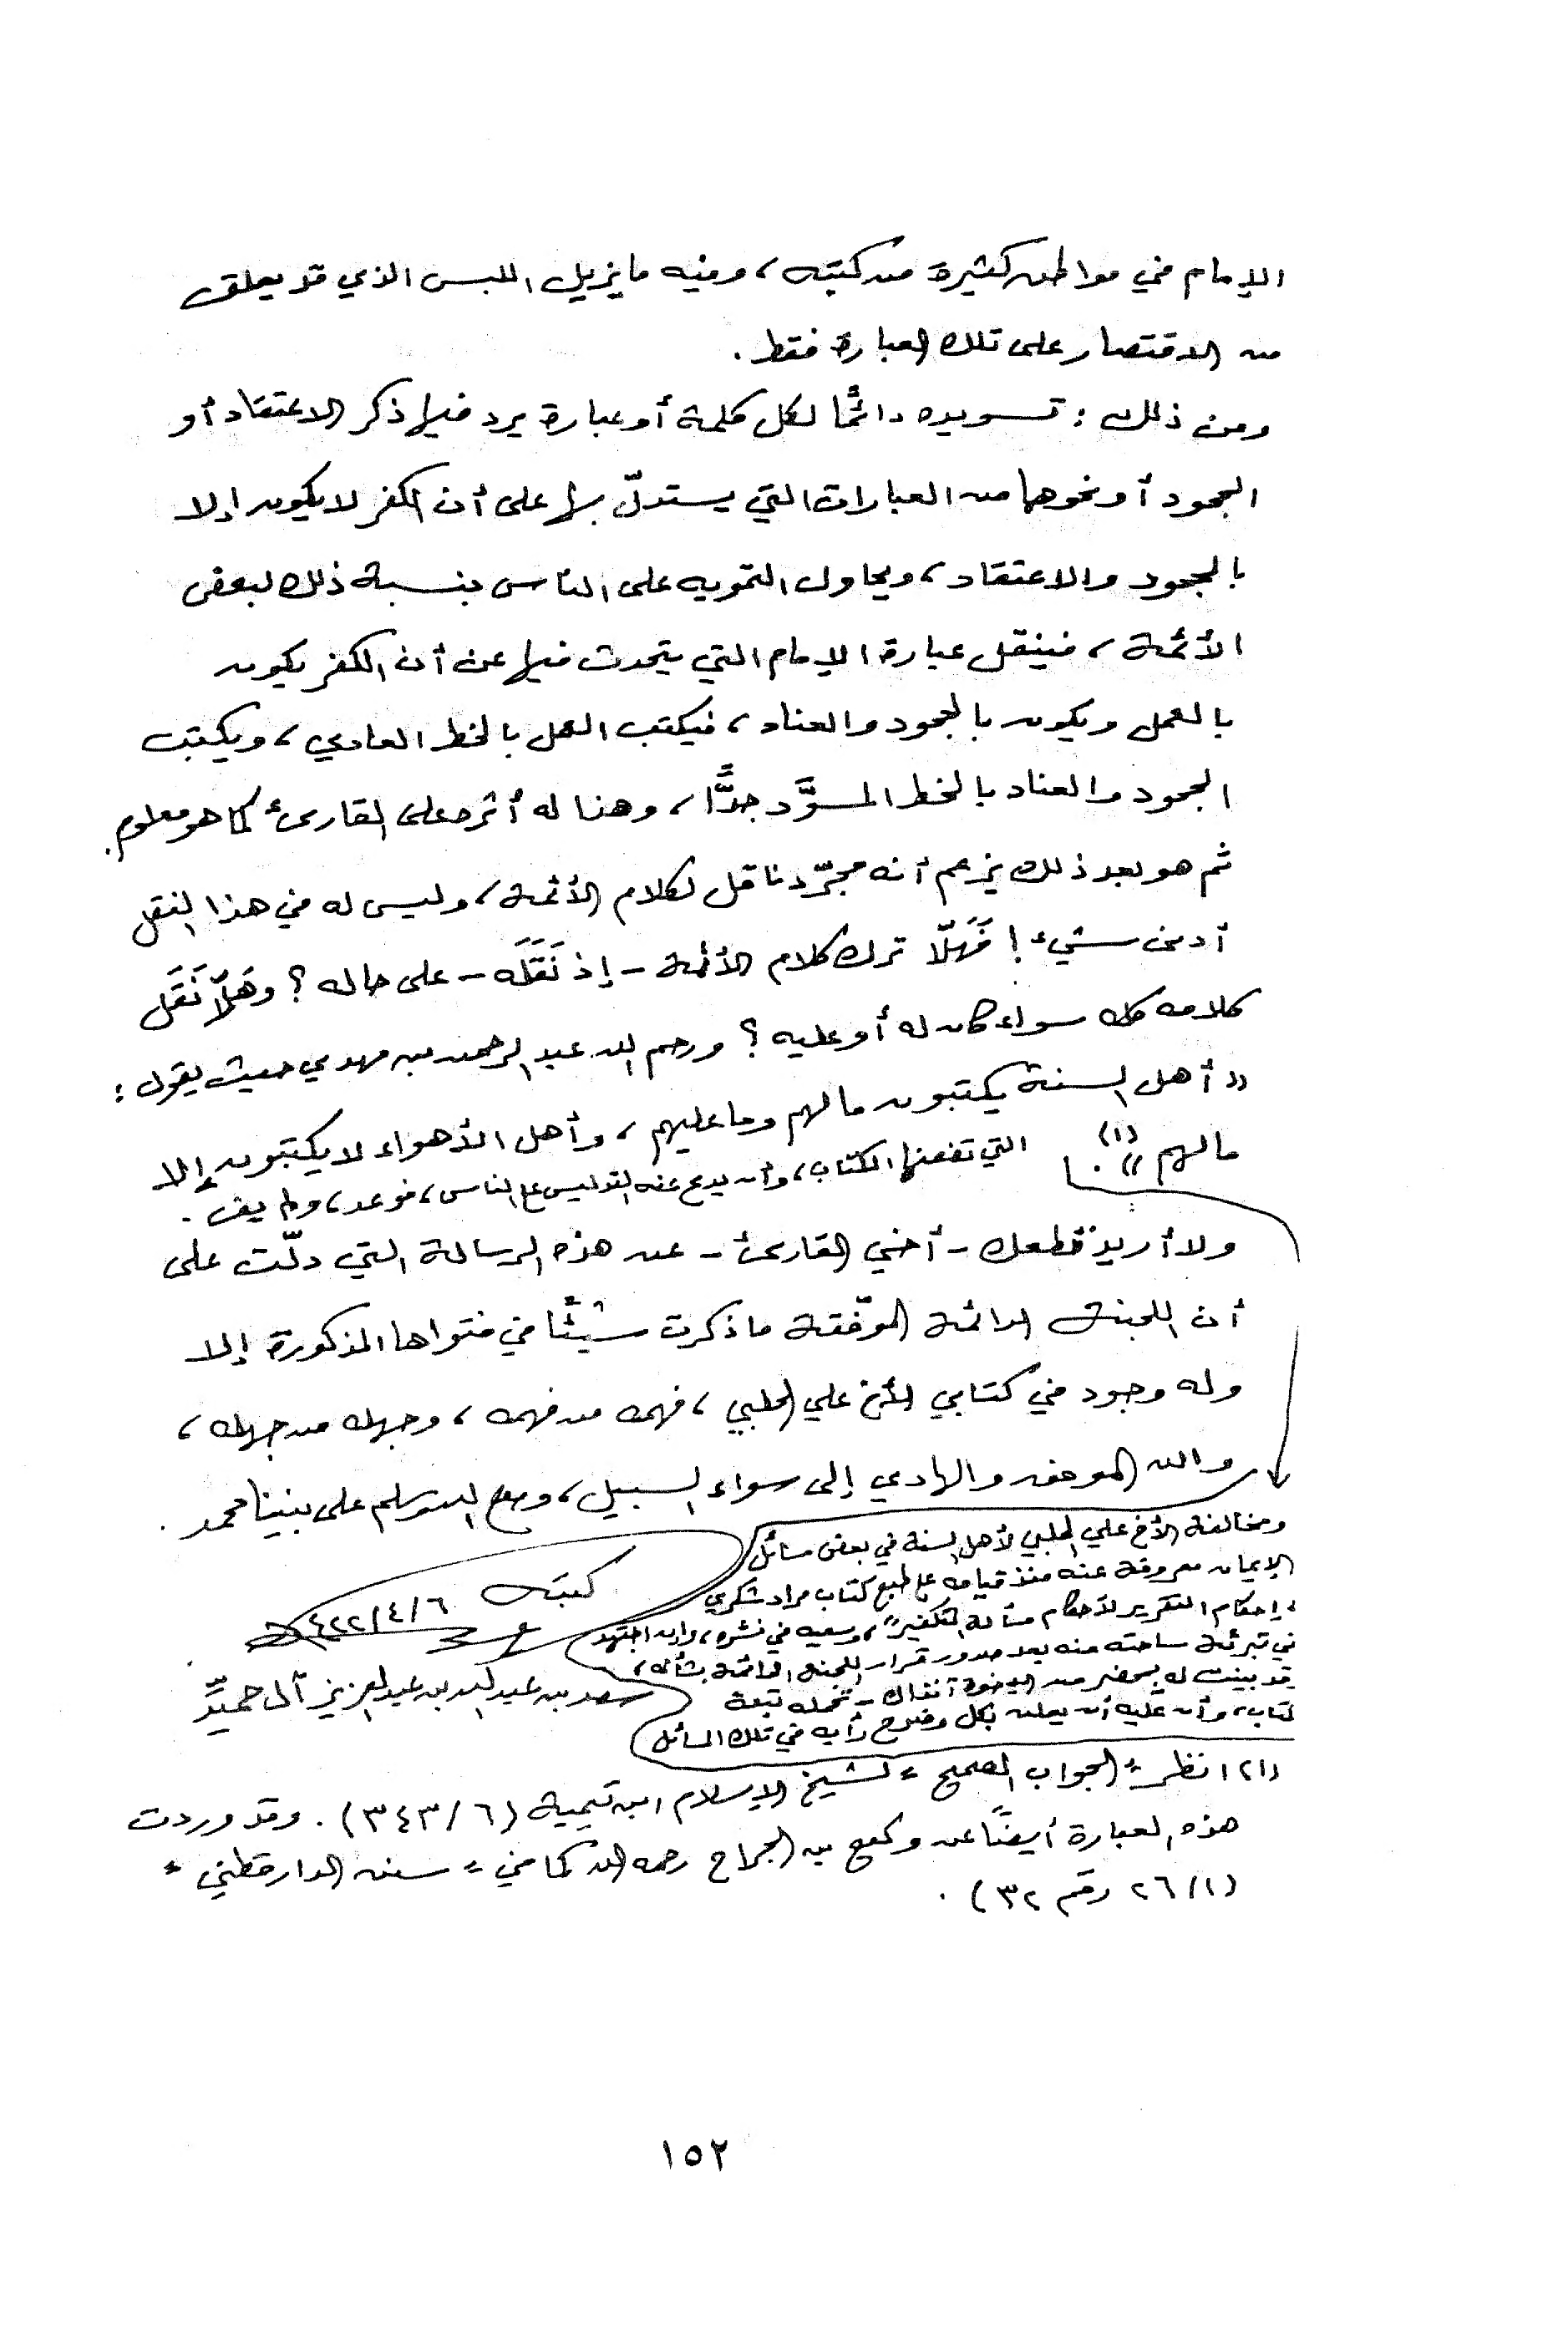 الإمام في مواطن كثيرة من كتبه، وفيه ما يزيل اللبس الذي قد يعلق
من الاقتصار على تلك العبارة فقط.
ومن ذلك: تسويده دائمًا لكل كلمة أو عبارة يرد فيها ذكر الاعتقاد أو
الجحود أو نحوهما من العبارات التي يستدلّ بها على أن الكفر لا يكون إلا
بالجحود والاعتقاد، ويحاول التمويه على الناس بنسبة ذلك لبعض
الأئمة، فينقل عبارة الإمام التي يتحدث فيها عن أن الكفر يكون
بالعمل ويكون بالجحود والعناد، فيكتب العمل بالخط العادي، ويكتب
الجحود والعناد بالخط المسوَّد جدًّا، وهذا له أثره على القارئ كما هو معلوم.
ثم هو بعد ذلك يزعم أنه مجرّد ناقل لكلام الأئمة، وليس له في هذا النقل
أدنى شيء! فَهَلّا ترك كلام الأئمة - إذ نَقَلَه - على حاله؟ وهَلّا نَقَل
كلامه كله سواء كان له أو عليه؟ ورحم الله عبد الرحمن بن مهدي حيث يقول:
«أهل السنة يكتبون ما لهم وما عليهم، وأهل الأهواء لا يكتبون إلا
ما لهم»(١).
ولا أريد قطعك - أخي القارئ - عن هذه الرسالة التي دلّت على
أن اللجنة الدائمة الموفّقة ما ذكرت شيئًا في فتواها المذكورة إلا
وله وجود في كتابي الأخ علي الحلبي، فهمه من فهمه، وجهله من جهله،
والله الموفق والهادي إلى سواء السبيل، وصلى الله وسلم على نبينا محمد.
ومخالفة الأخ علي الحلبي لأهل السنة في بعض مسائل
الإيمان معروفة عنه منذ قيامه على طبع كتاب مراد شكري
"إحكام التقرير لأحكام مسألة التكفير"، وسعيه في نشره، وإن اجتهد
في تبرئة ساحته منه بعد صدور قرار اللجنة الدائمة بشأنه،
قد بينت له بمحضر من الإخوة آنذاك - تحمله تبعة
كتاب، وأن عليه أن يعلن بكل وضوح رأيه في تلك المسائل
التي تضمنها الكتاب، وأن يدع عنه التدليس على الناس، فوعد، ولم يف.
كتبه
٤٢٢/٤/٦هـ
سعد بن عبد الله بن عبد العزيز آل حميّد
(١) انظر "الجواب الصحيح" لشيخ الإسلام ابن تيمية (٦/٣٤٣). وقد وردت
هذه العبارة أيضًا عن وكيع بن الجراح رحمه الله كما في "سنن الدارقطني"
(١/٢٦ رقم ٣٢).
١٥٢